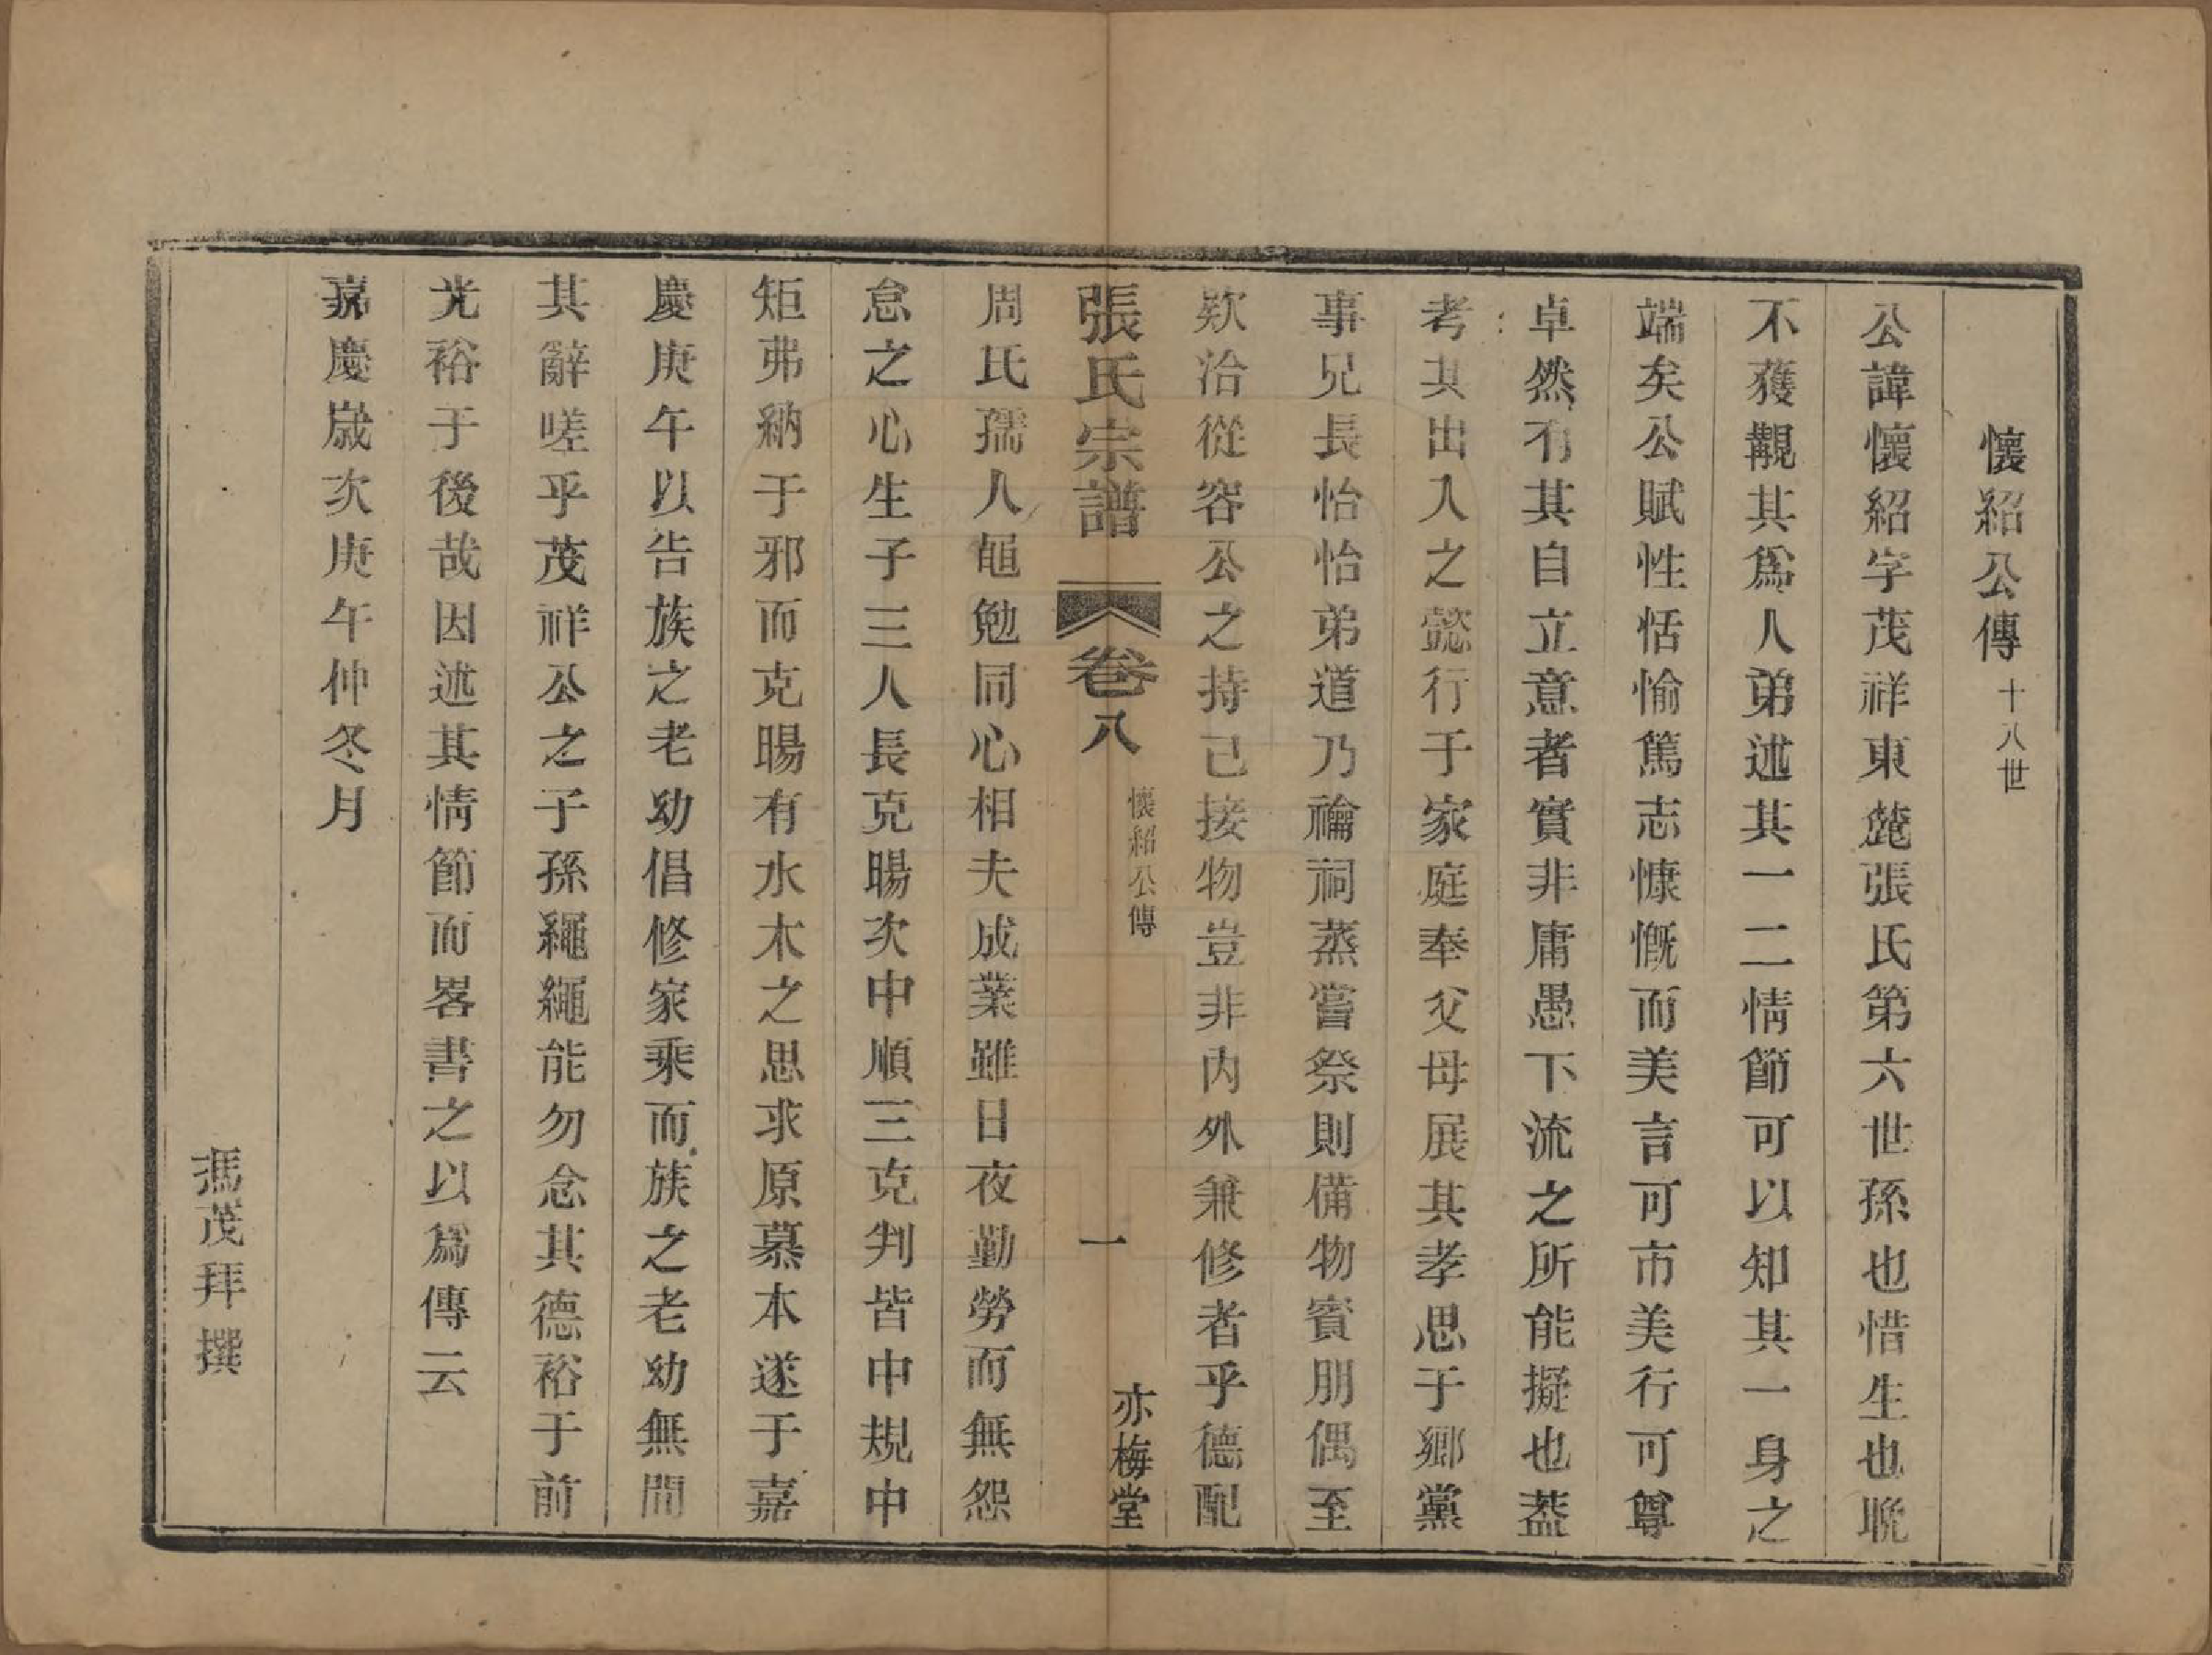 懷紹公傳 十八世
公諱懷紹字茂祥東麓張氏第六世孫也惜生也晚
不獲覩其爲人弟述其一二情節可以知其一身之
端矣公賦性恬愉篤志慷慨而美言可市美行可尊
卓然有其自立意者實非庸愚下流之所能擬也葢
考其出入之懿行于家庭奉父母展其孝思于鄉黨
事兄長怡怡弟道乃禴祠蒸嘗祭則備物賓朋偶至
欵洽從容公之持己接物豈非內外兼修者乎德配
張氏宗譜 卷八 懷紹公傳 一 亦梅堂
周氏孺人黽勉同心相夫成業雖日夜勤勞而無怨
怠之心生子三人長克暘次中順三克判皆中規中
矩弗納于邪而克暘有水木之思求原慕本遂于嘉
慶庚午以告族之老幼倡修家乘而族之老幼無間
其辭嗟乎茂祥公之子孫繩繩能勿念其德裕于前
光裕于後哉因述其情節而畧書之以爲傳云
嘉慶歲次庚午仲冬月
茂拜撰